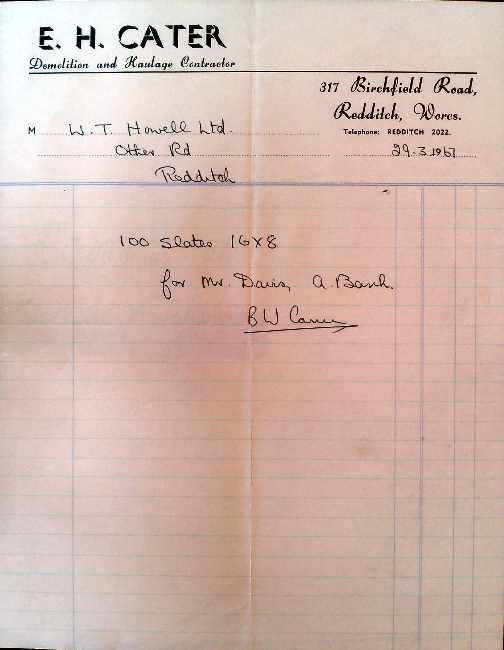 E. H. CATER
Demolition and Haulage Contractor
317 Birchfield Road,
Redditch, Worcs.
Telephone: REDDITCH 2022.
M W. T. Howell Ltd.
Other Rd
29.3.1967
Redditch
100 Slates 16X8
for Mr. Davis, A. Bank.
BW